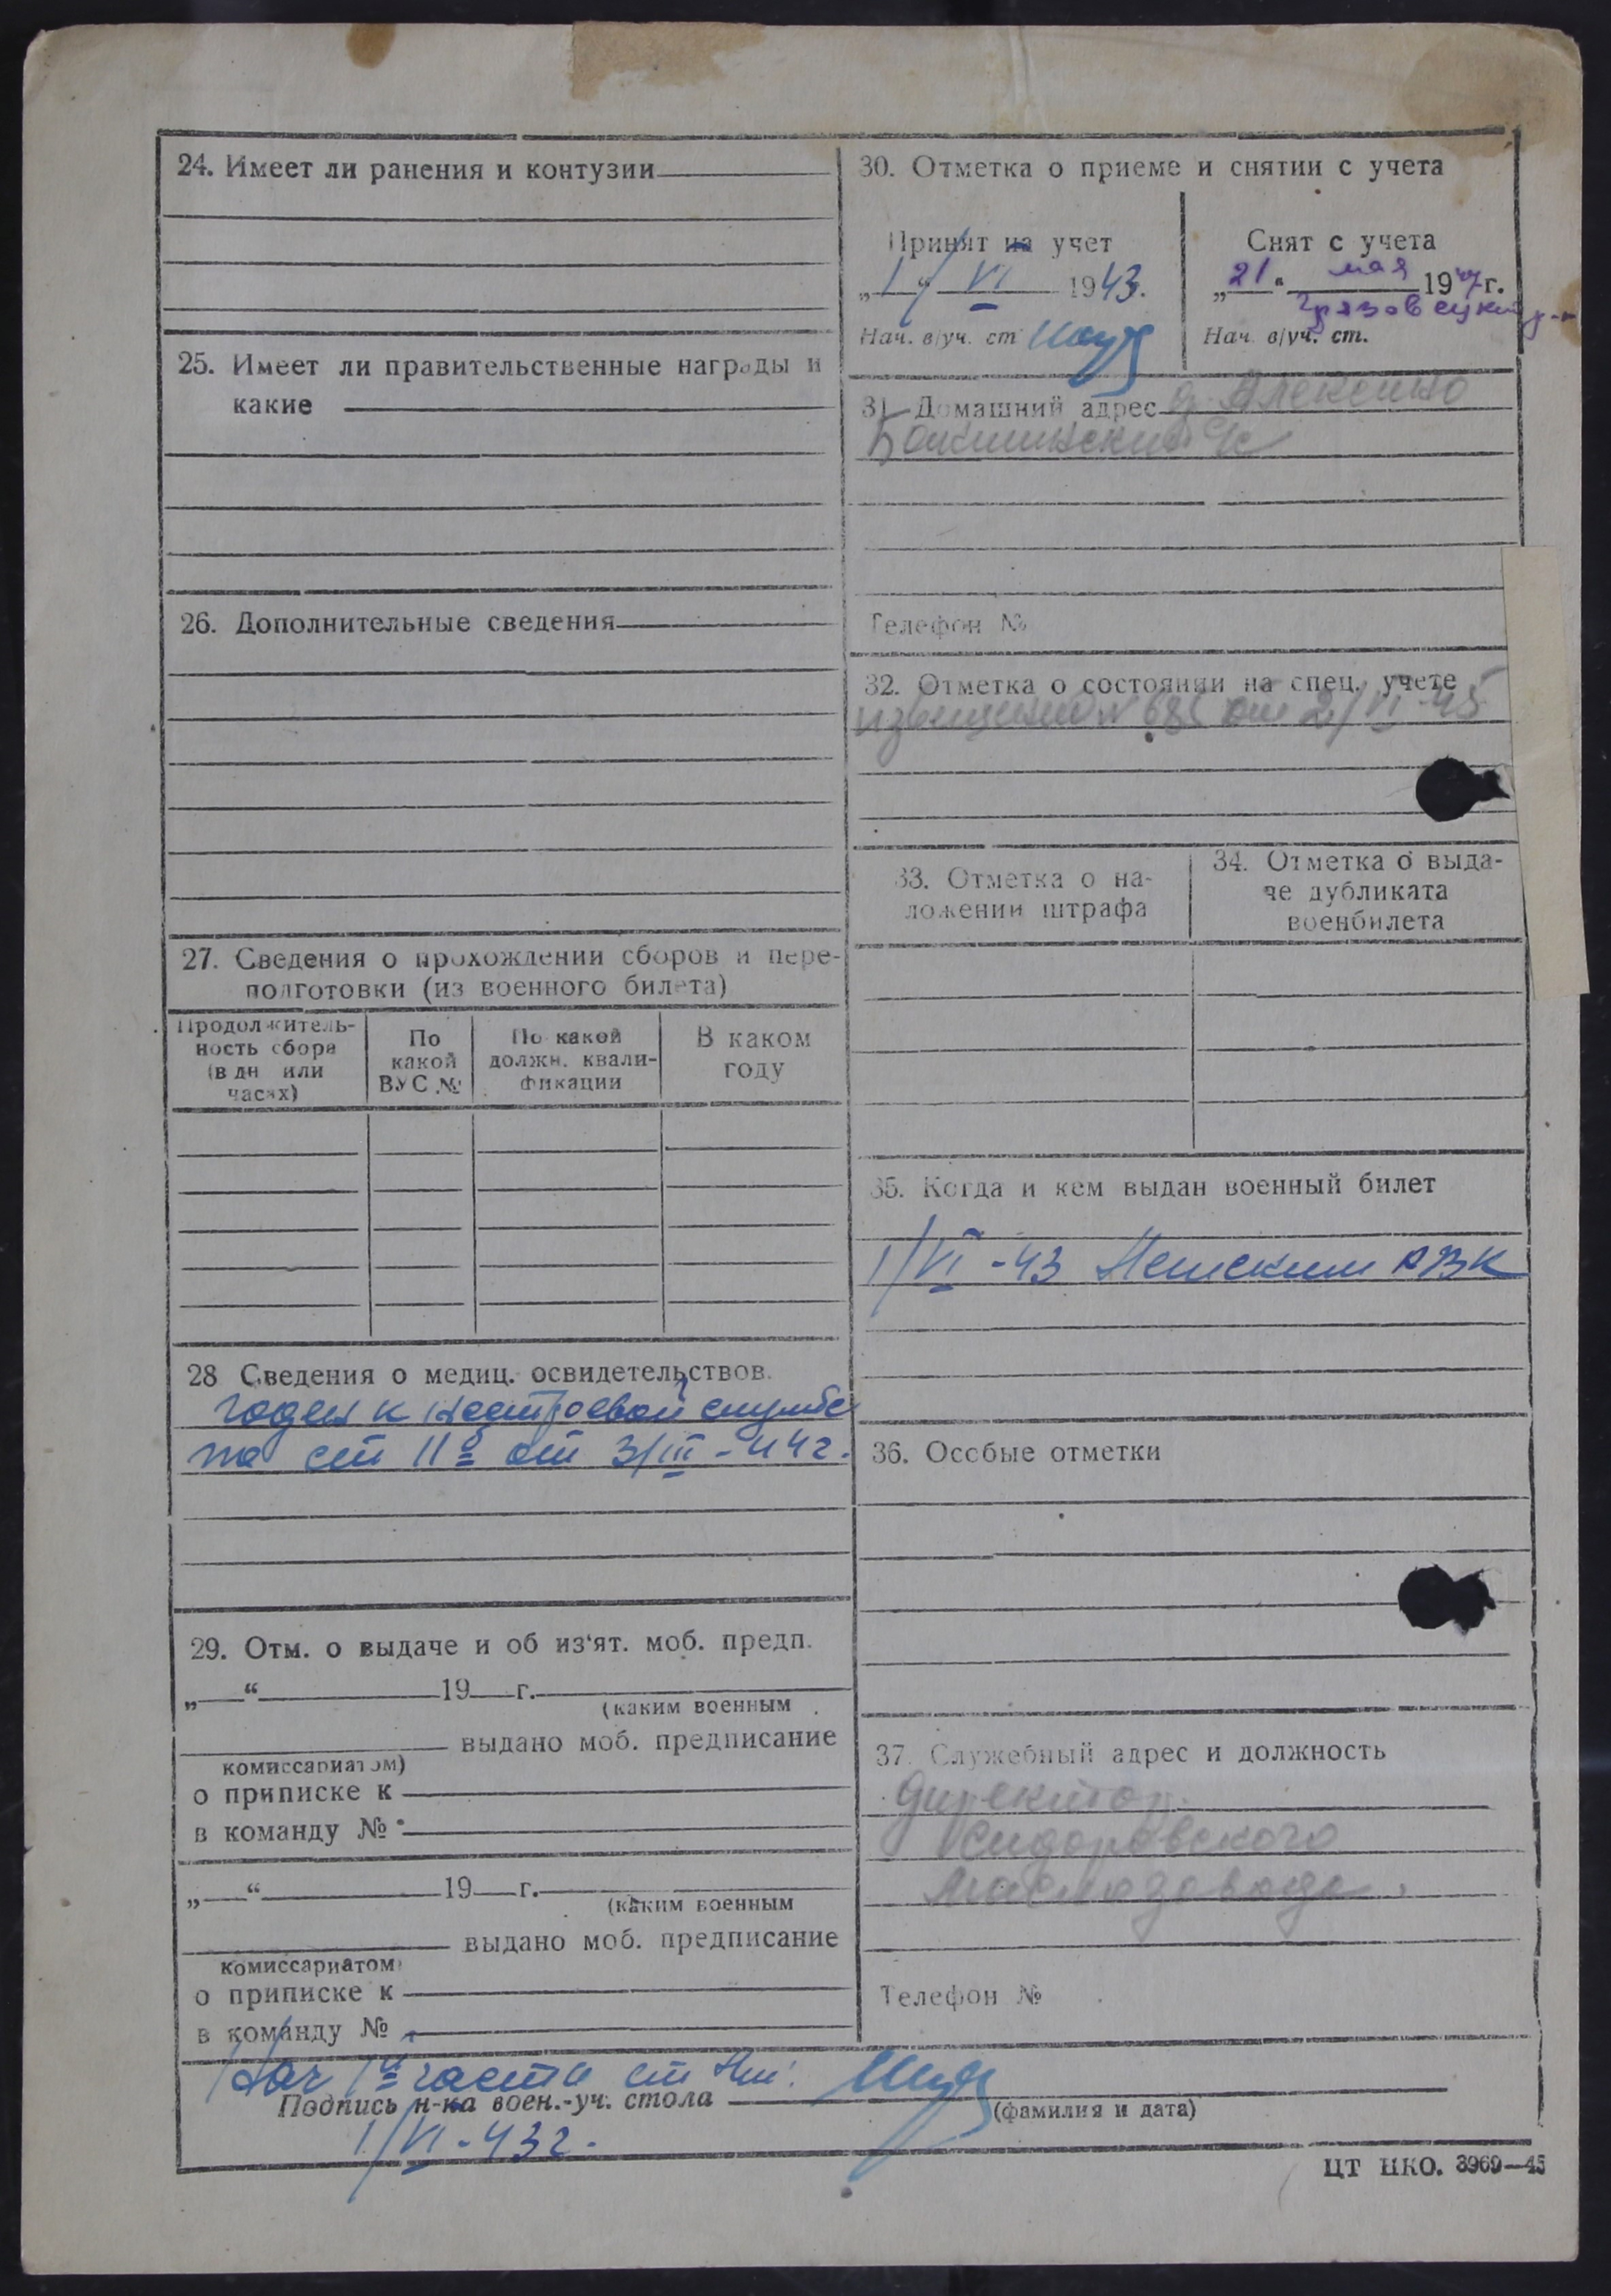 24. Имеет ли ранения и контузии
25. Имеет ли правительственные награды и
какие
26. Дополнительные сведения
27. Сведения о прохождении сборов и пере-
подготовки (из военного билета)
Продолжитель-
ность сбора
(в дн или
часах)
По
какой
ВУС №
По какой
должн. квали-
фикации
В каком
году
28 Сведения о медиц. освидетельствов.
годен к нестроевой службе
по ст IIб от 3/III-44г.
29. Отм. о выдаче и об из'ят. моб. предп.
„ “ 19 г.
(каким военным
выдано моб. предписание
комиссариатом)
о приписке к
в команду №
„ “ 19 г.
(каким военным
выдано моб. предписание
комиссариатом)
о приписке к
в команду №
30. Отметка о приеме и снятии с учета
Принят на учет
„1“ VI 1943.
Нач. в/уч. ст
Снят с учета
„21“ мая 1947г.
Грязовецкий р-н
Нач. в/уч. ст.
31 Домашний адрес д. Алексино
с/с
Телефон №
32. Отметка о состоянии на спец. учете
извещение № от 2/VI-45
33. Отметка о на-
ложении штрафа
34. Отметка о выда-
че дубликата
военбилета
35. Когда и кем выдан военный билет
1/VI-43 РВК
36. Особые отметки
37. Служебный адрес и должность
директор
Сидоровского
маслозавода.
Телефон №
Нач 1й части ст
Подпись н-ка воен.-уч. стола
(фамилия и дата)
1/VI-43г.
ЦТ НКО. 3969—45